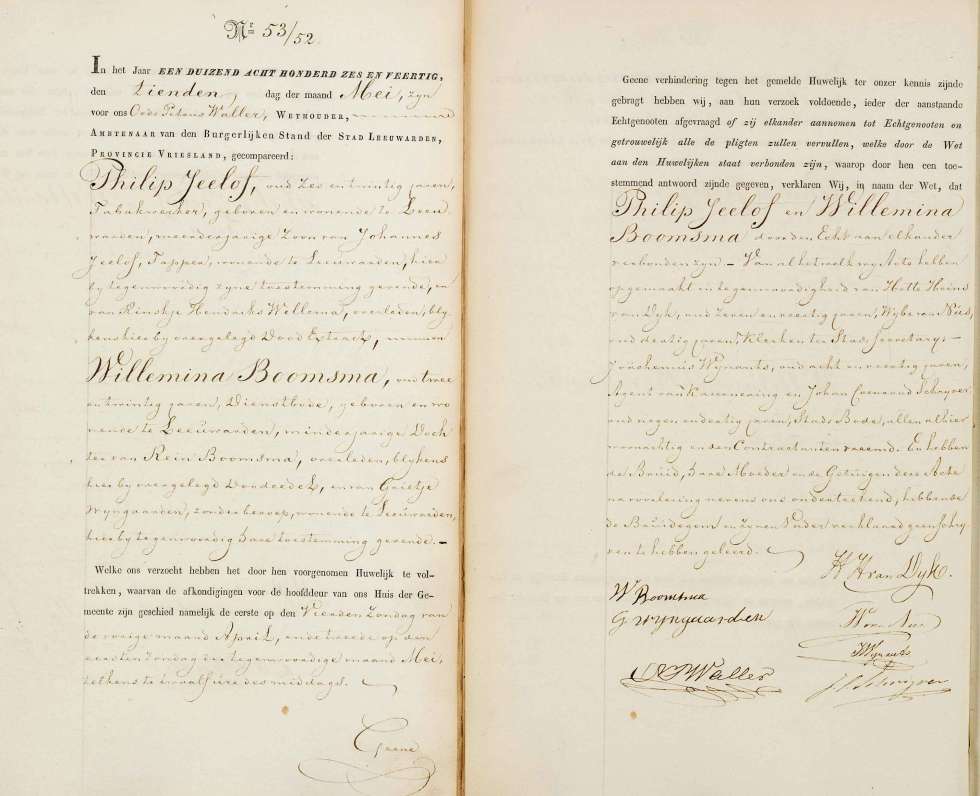 Nr 53/52.
In het Jaar EEN DUIZEND ACHT HONDERD ZES EN VEERTIG,
den tienden, dag der maand Mei, zyn
voor ons Petrus Waller, WETHOUDER,
AMBTENAAR van den Burgerlijken Stand der STAD LEEUWARDEN,
PROVINCIE VRIESLAND, gecompareerd:
Philip Jeelof, oud zes entwintig jaren,
Fabrikwerker, geboren en wonende te Leeu-
warden, meerderjarige Zoon van Johannes
Jeelof, Tapper, wonende te Leeuwarden, hier
by tegenwoordig zyne toestemming gevende, en
van Rinskje Hendriks Wellema, overleden, bly-
kens hierby overgelegd Dood Extract,
Willemina Boomsma, oud twee
entwintig jaren, Dienstbode, geboren en wo-
nende te Leeuwarden, minderjarige Doch-
ter van Rein Boomsma, overleden, blykens
hierby overgelegd Doodcedel, en van Geertje
Wyngaarden, zonder beroep, wonende te Leeuwarden,
hierby tegenwoordig hare toestemming gevende. —
Welke ons verzocht hebben het door hen voorgenomen Huwelijk te vol-
trekken, waarvan de afkondigingen voor de hoofddeur van ons Huis der Ge-
meente zijn geschied namelijk de eerste op den Vierden Zondag van
de vorige maand April, en de tweede op den
eersten Zondag der tegenwoordige maand Mei,
telkens te twaalf ure des middags.
Geene
Geene verhindering tegen het gemelde Huwelijk ter onzer kennis zijnde
gebragt hebben wij, aan hun verzoek voldoende, ieder der aanstaande
Echtgenooten afgevraagd of zij elkander aannemen tot Echtgenooten en
getrouwelijk alle de pligten zullen vervullen, welke door de Wet
aan den Huwelijken staat verbonden zijn, waarop door hen een toe-
stemmend antwoord zijnde gegeven, verklaren Wij, in naam der Wet, dat
Philip Jeelof en Willemina
Boomsma door den Echt aan elkander
verbonden zyn — Van al hetwelk wy Acte hebben
opgemaakt in tegenwoordigheid van Hotte Heins
van Dyk, oud zeven en veertig jaren, Wybe van Nues,
oud dertig jaren, Klerken ter Stads Secretary, —
Joachemus Wynants, oud acht en veertig jaren,
Agent van Kazernering en Johan Coenraad Schryver
oud negen en dertig jaren, Stads Bode, allen alhier
woonachtig en den Contractanten vreemd. En hebben
de Bruid, hare Moeder en de Getuigen deze Acte
na voorlezing nevens ons onderteekend, hebbende
de Bruidegom en zynen Vader verklaard geen schry-
ven te hebben geleerd.
H H van Dyk.
W Boomsma
G wyngaarden
W van Nues
JWynants
Waller
J C Schryver